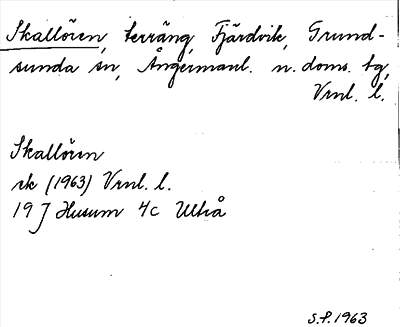 Skallören, terräng, Fjärdvik, Grund-
sunda sn, Ångermanl. n. doms. tg,
Vrnl. l.
Skallören
rk (1963) Vrnl. l.
19 J Husum 4c Ultrå
S.P. 1963